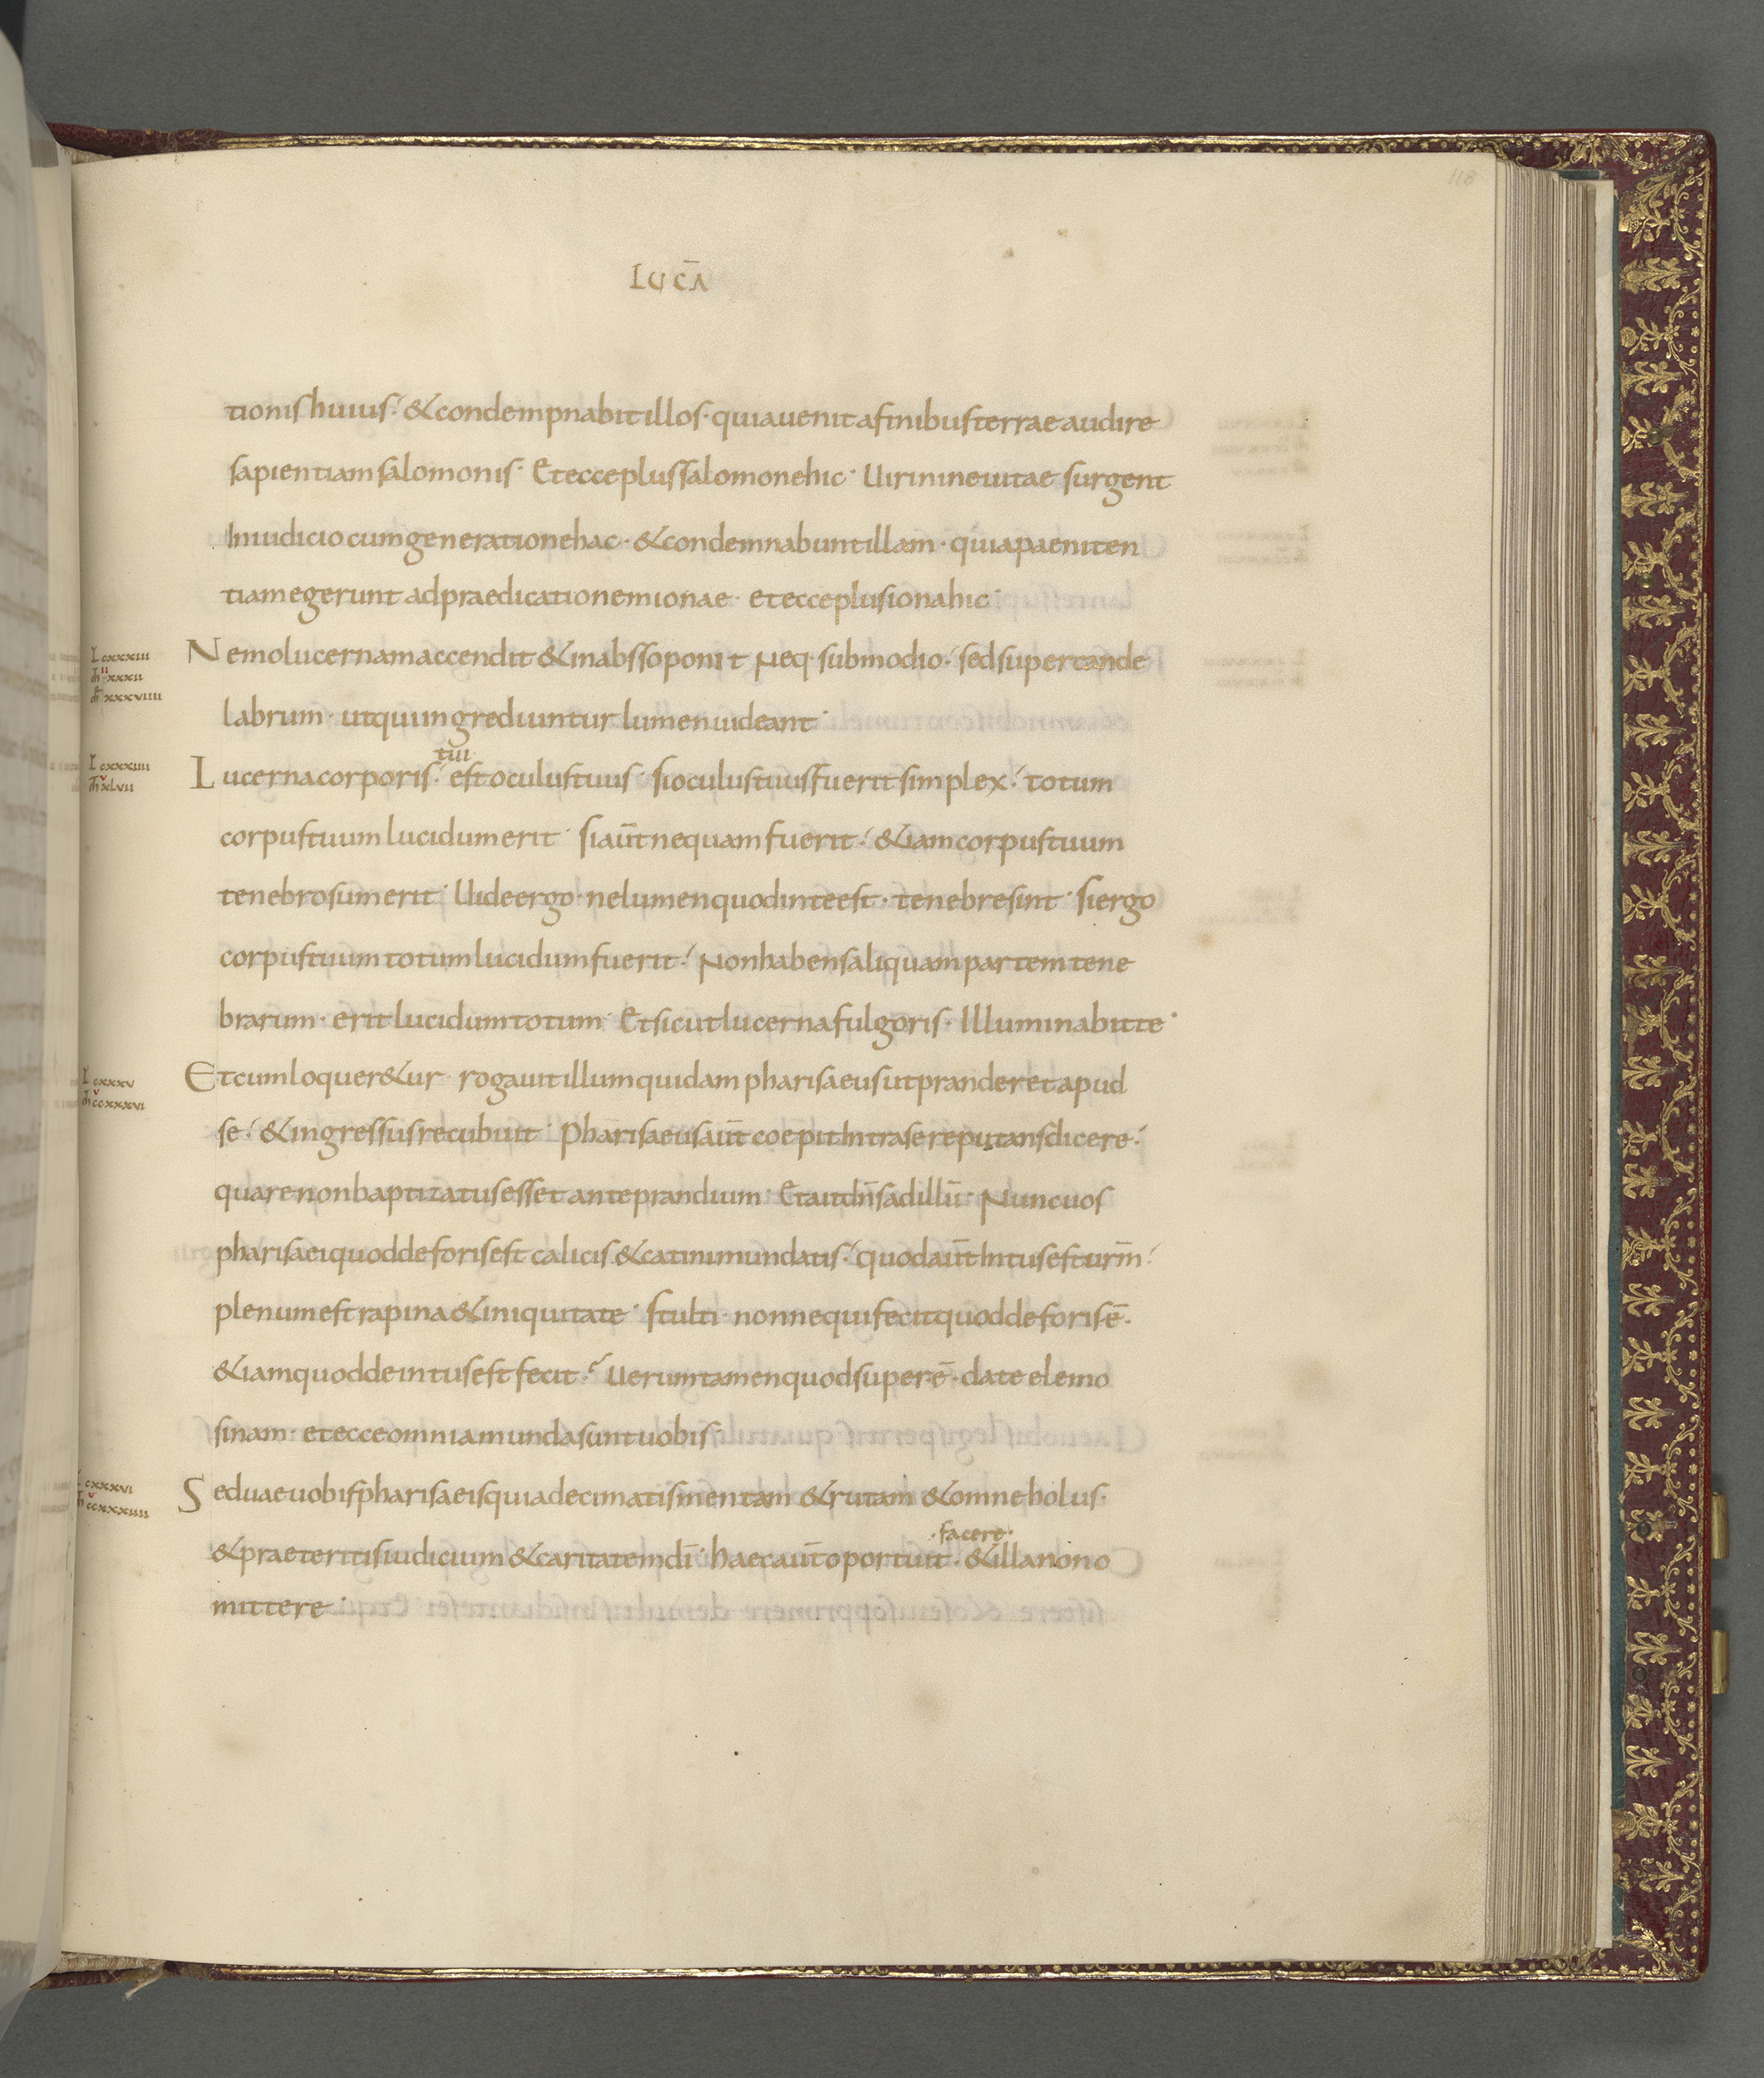 118
LUCĀ
tionis huius · & condempnabit illos · quia uenit a finibus terrae audire
sapientiam salomonis · Et ecce plus salomone hic · Uiri nineuitae surgent
In iudicio cum generatione hac · & condemnabunt illam · quia paeniten
tiam egerunt ad praedicationem ionae · et ecce plus iona hic ·
L cxxxiii
m̄ xxxii
m̄r xxxviiii
Nemo lucernam accendit & in absso ponit Neq· sub modio · sed super cande
labrum · ut qui ingrediuntur lumen uideant ·
L cxxxiiii
m̄ xlvii
tui
Lucerna corporis · est oculus tuus · si oculus tuus fuerit simplex · totum
corpus tuum lucidum erit · si aūt nequam fuerit · &iam corpus tuum
tenebrosum erit · Uide ergo · ne lumen quod in te est · tenebre sint · si ergo
corpus tuum totum lucidum fuerit · Non habens aliquam partem tene
brarum · erit lucidum totum · Et sicut lucerna fulgoris · Illuminabit te ·
L cxxxv
m̄ ccxxxvi
Et cum loquer&ur rogauit illum quidam pharisaeus ut pranderet apud
se · & ingressus recubuit · Pharisaeus aūt coepit Intra se reputans dicere ·
quare non baptizatus esset ante prandium · Et ait dn̄s ad illū · Nunc uos
pharisaei quod de foris est calicis & catini mundatis · quod aūt Intus est urm̄ ·
plenum est rapina & iniquitate · stulti · nonne qui fecit quod de foris ē ·
&iam quod de intus est fecit · Uerumtamen quod super ē · date elemo
sinam · et ecce omnia munda sunt uobis ·
L cxxxvi
m̄ ccxxxiiii
Sed uae uobis pharisaeis quia decimatis mentam & rutam & omne holus ·
·facere·
& praeteritis iudicium & caritatem dī · haec aūt oportuit · & illa non o
mittere ·